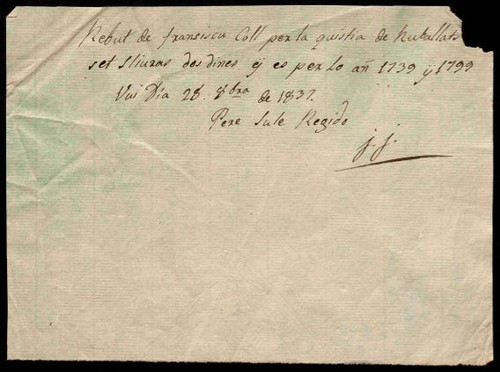 Rebut de fransiscu Coll per la quistia de Ruballats
set lliuras dos dines ÿ es per lo añ 1739 ÿ 1799
Vui Dia 28 8bra de 1837.
Pere Sule Regido
j. j.